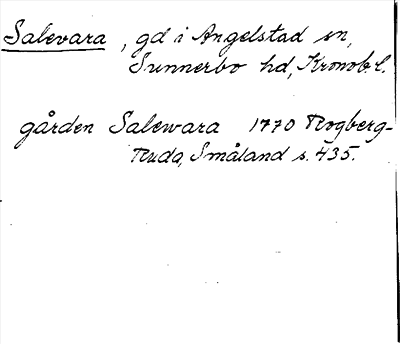 Salevara, gd i Angelstad sn,
Sunnerbo hd, Kronob. l.
gården Salewara 1770 Rogberg-
Ruda, Småland s. 435.